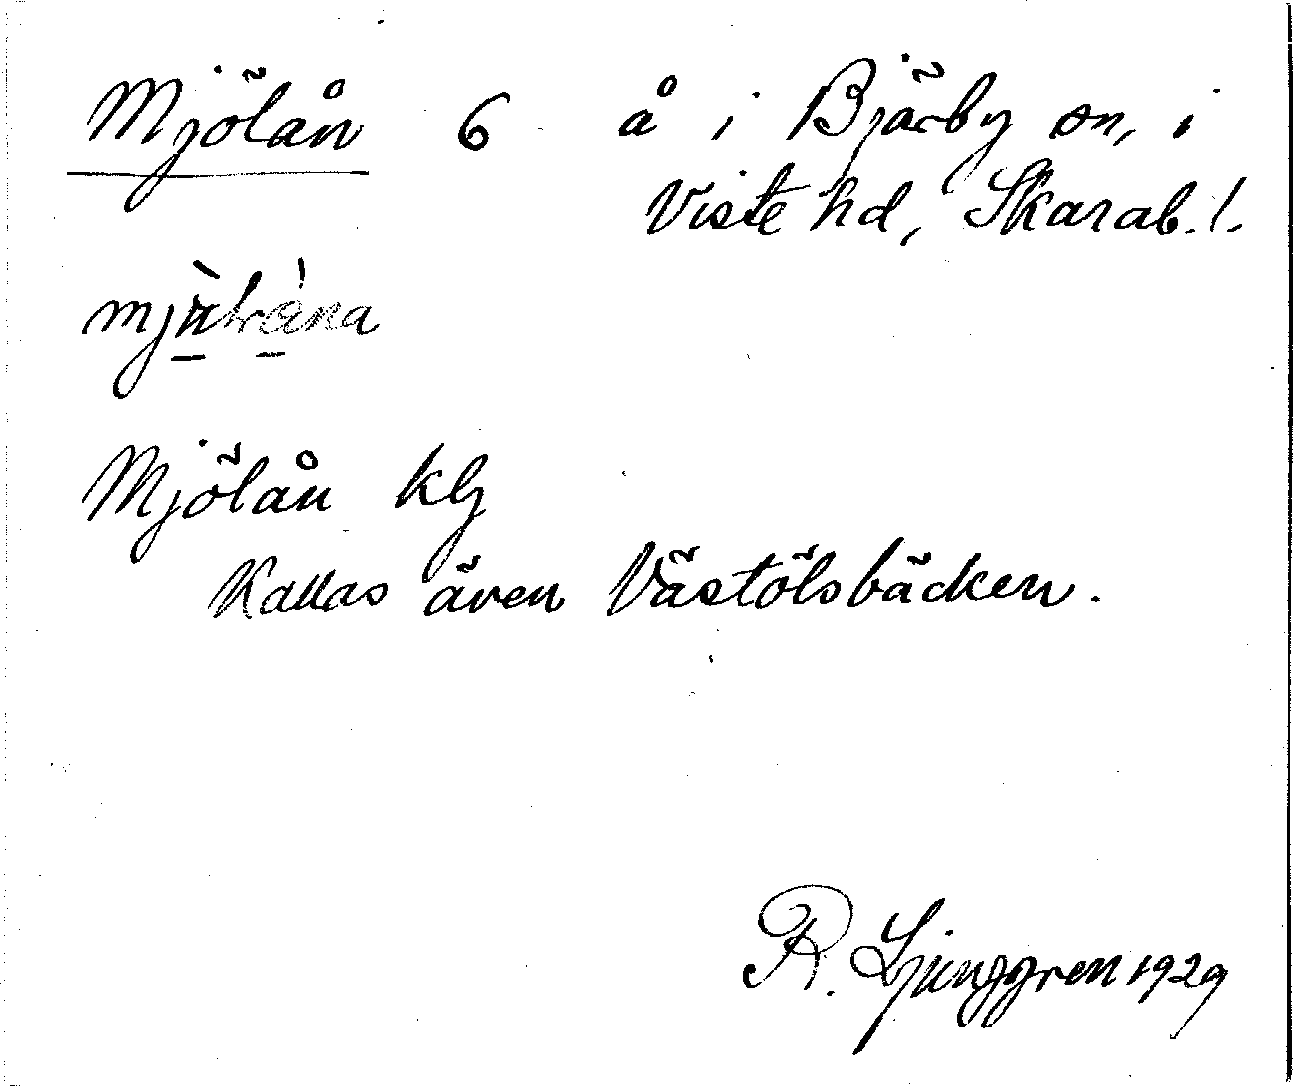 Mjölån 6 å i Bjärby sn, i
Viste hd, Skarab. l.
Mjölån klg
Kallas även Västölsbäcken.
R. Ljunggren 1929